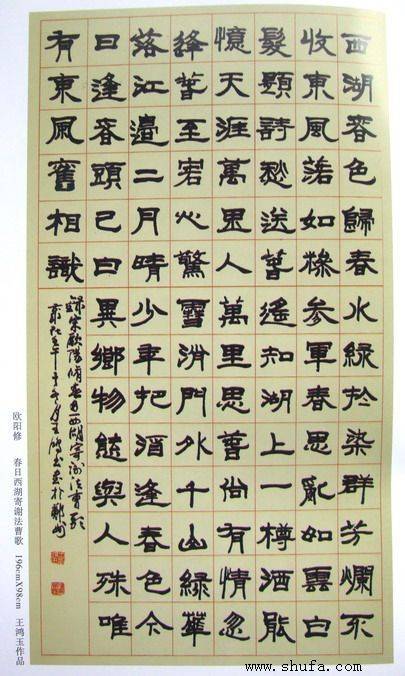 西湖春色歸春水綠於染群芳爛不
收東風落如糝參軍春思亂如雲白
髮題詩愁送春遙知湖上一樽酒能
憶天涯萬里人萬里思春尚有情忽
逢春至客心驚雪消門外千山綠華
落江邊二月晴少年把酒逢春色今
日逢春頭已白異鄉物態與人殊唯
有東風舊相識
錄宋歐陽修春日西湖寄謝法曹歌
王鴻玉書於鄭州
欧阳修 春日西湖寄谢法曹歌 196cmX98cm 王鸿玉作品
www.shufa.com